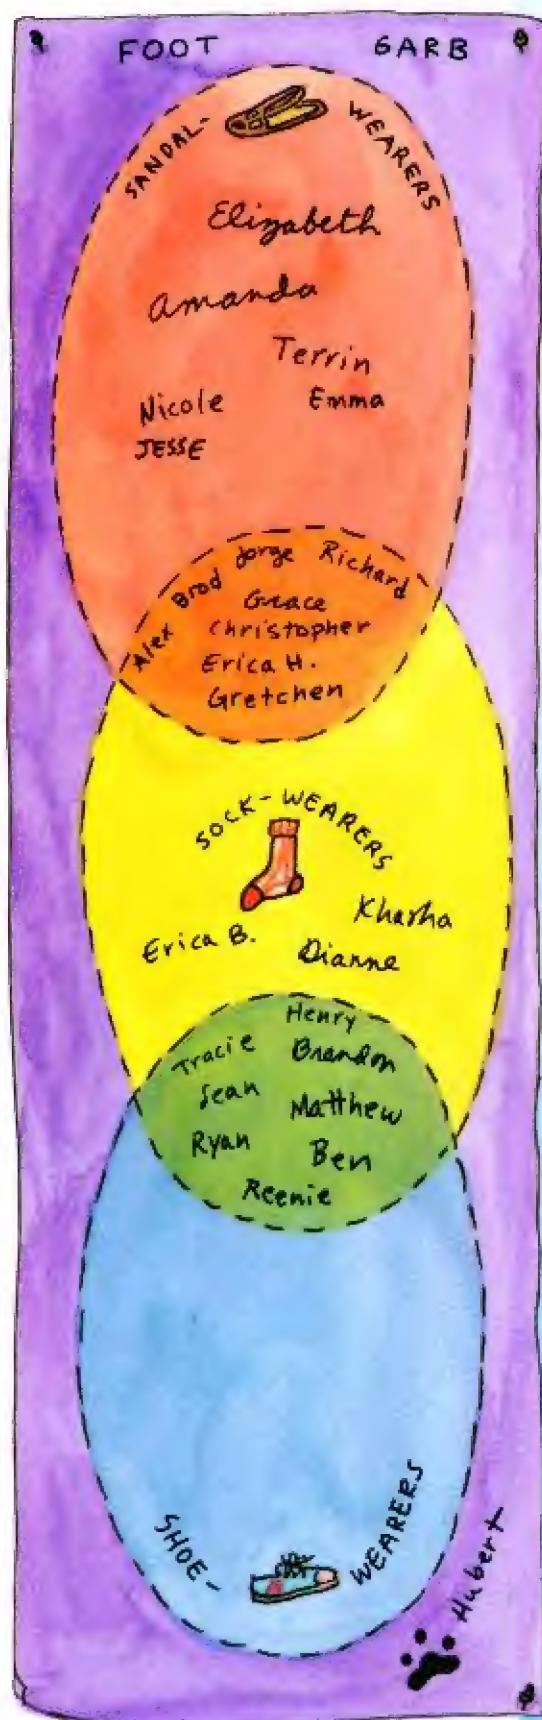 FOOT GARB
SANDAL- WEARERS
Elizabeth
Amanda
Terrin
Nicole Emma
JESSE
Alex Brad Jorge Richard
Grace
Christopher
Erica H.
Gretchen
SOCK-WEARERS
Kharha
Erica B. Dianne
Henry
Tracie Brandon
Sean Matthew
Ryan Ben
Reenie
SHOE- WEARERS
Hubert